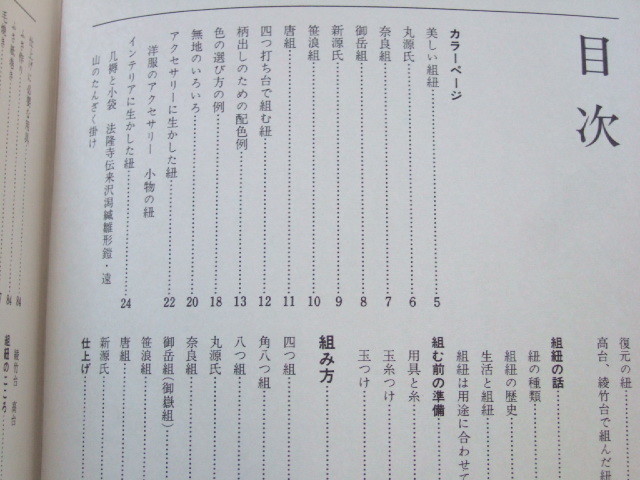 目次
カラーページ
美しい組紐……5
丸源氏……6
奈良組……7
御岳組……8
新源氏……9
笹浪組……10
唐組……11
四つ打ち台で組む紐……12
柄出しのための配色例……13
色の選び方の例……18
無地のいろいろ……20
アクセサリーに生かした紐……22
洋服のアクセサリー　小物の紐
インテリアに生かした紐……24
几帳と小袋　法隆寺伝来沢瀉縅雛形鎧・遠
山のたんざく掛け
復元の紐……
高台、綾竹台で組んだ紐
組紐の話
紐の種類……
組紐の歴史……
生活と組紐……
組紐は用途に合わせて
組む前の準備
用具と糸……
玉糸つけ……
玉つけ……
組み方
四つ組……
角八つ組……
八つ組……
丸源氏……
奈良組……
御岳組(御嶽組)……
笹浪組……
唐組……
新源氏……
仕上げ……
84
84
綾竹台　高台
組紐のこころ